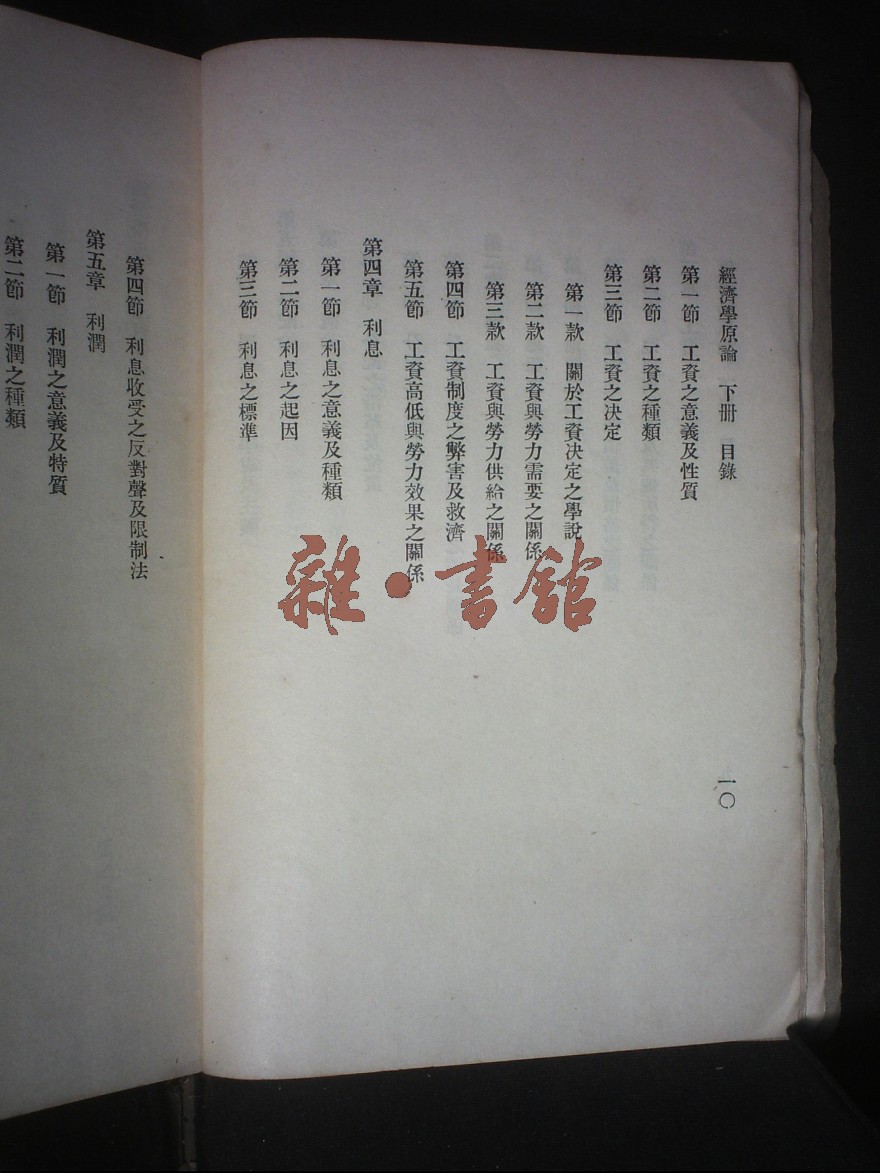 經濟學原論 下册 目錄
一〇
第一節 工資之意義及性質
第二節 工資之種類
第三節 工資之決定
第一款 關於工資決定之學說
第二款 工資與勞力需要之關係
第三款 工資與勞力供給之關係
第四節 工資制度之弊害及救濟
第五節 工資高低與勞力效果之關係
第四章 利息
第一節 利息之意義及種類
第二節 利息之起因
第三節 利息之標準
第四節 利息收受之反對聲及限制法
第五章 利潤
第一節 利潤之意義及特質
第二節 利潤之種類
雜·書館